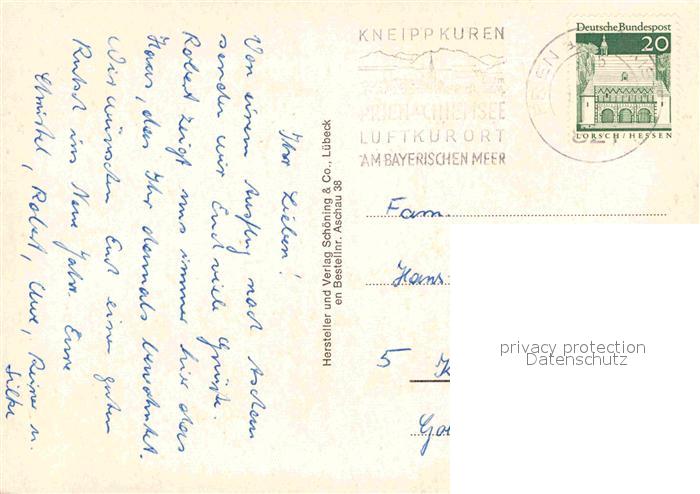 Ihr Lieben!
Von einem Ausflug nach Aschau
senden wir Euch viele Grüße.
Robert zeigt uns immer hier das
Haus, das Ihr damals bewohntet.
Wir wünschen Euch einen guten
Rutsch ins Neue Jahr. Eure
Christel, Robert, Uwe, Reiner u.
Silke
Hersteller und Verlag Schöning & Co., Lübeck
en Bestellnr. Aschau 38
KNEIPPKUREN
LUFTKURORT
AM BAYERISCHEN MEER
Deutsche Bundespost
20
LORSCH/HESSEN
Fam.
Hans-
5 K
privacy protection
Datenschutz